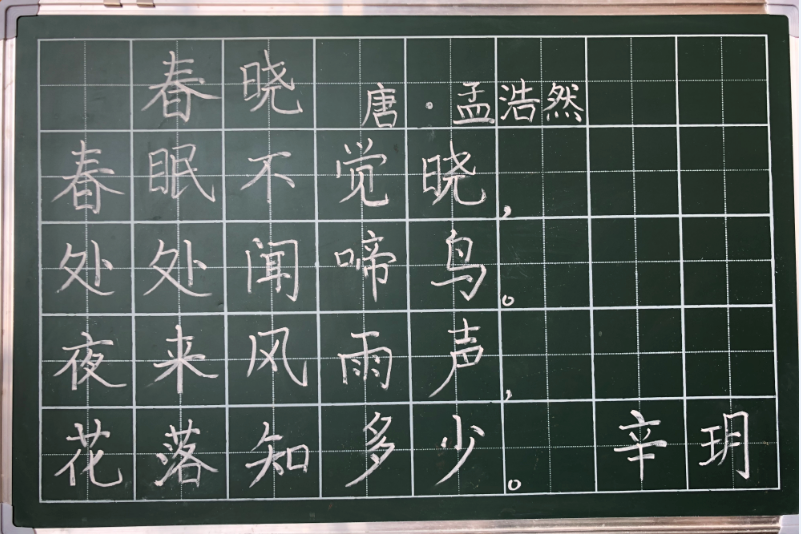 春晓 唐·孟浩然
春眠不觉晓，
处处闻啼鸟。
夜来风雨声，
花落知多少。 辛玥